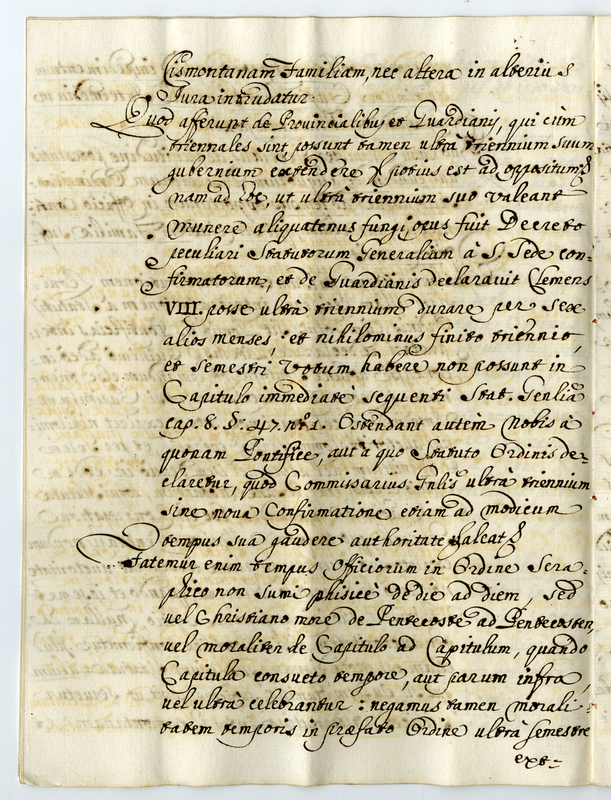 Cismontanam Familiam, nec altera in alterius
Jura intrudatur.
Quod afferunt de Provincialibus et Guardianis, qui cùm
triennales sint possunt tamen ultrà triennium suum
gubernium extendere potius est ad oppositum
nam ad hoc, ut ultrà triennium suo valeant
munere aliquatenus fungi, opus fuit Decreto
peculiari Statutorum Generalium à S. Sede con-
firmatorum, et de Guardianis declaravit Clemens
VIII. posse ultrà triennium durare per sex
alios menses, et nihilominus finito triennio,
et semestri Votum habere non possunt in
Capitulo immediatè sequenti Stat. Genlia
cap. 8. §. 47. nº. 1. Ostendant autem nobis à
quonam Pontifice, aut à quo Statuto Ordinis de-
claretur, quod Commissarius Gnlis ultrà triennium
sine nova Confirmatione etiam ad modicum
tempus sua gaudere authoritate valeat
Fatemur enim tempus Officiorum in Ordine Sera-
phico non sumi phisicè de die ad diem, sed
vel Christiano more de Pentecoste ad Pentecosten,
vel moraliter de Capitulo ad Capitulum, quando
Capitula consueto tempore, aut parum infra,
vel ultrà celebrantur: negamus tamen morali-
tatem temporis in præfato Ordine ultrà semestre
ext-